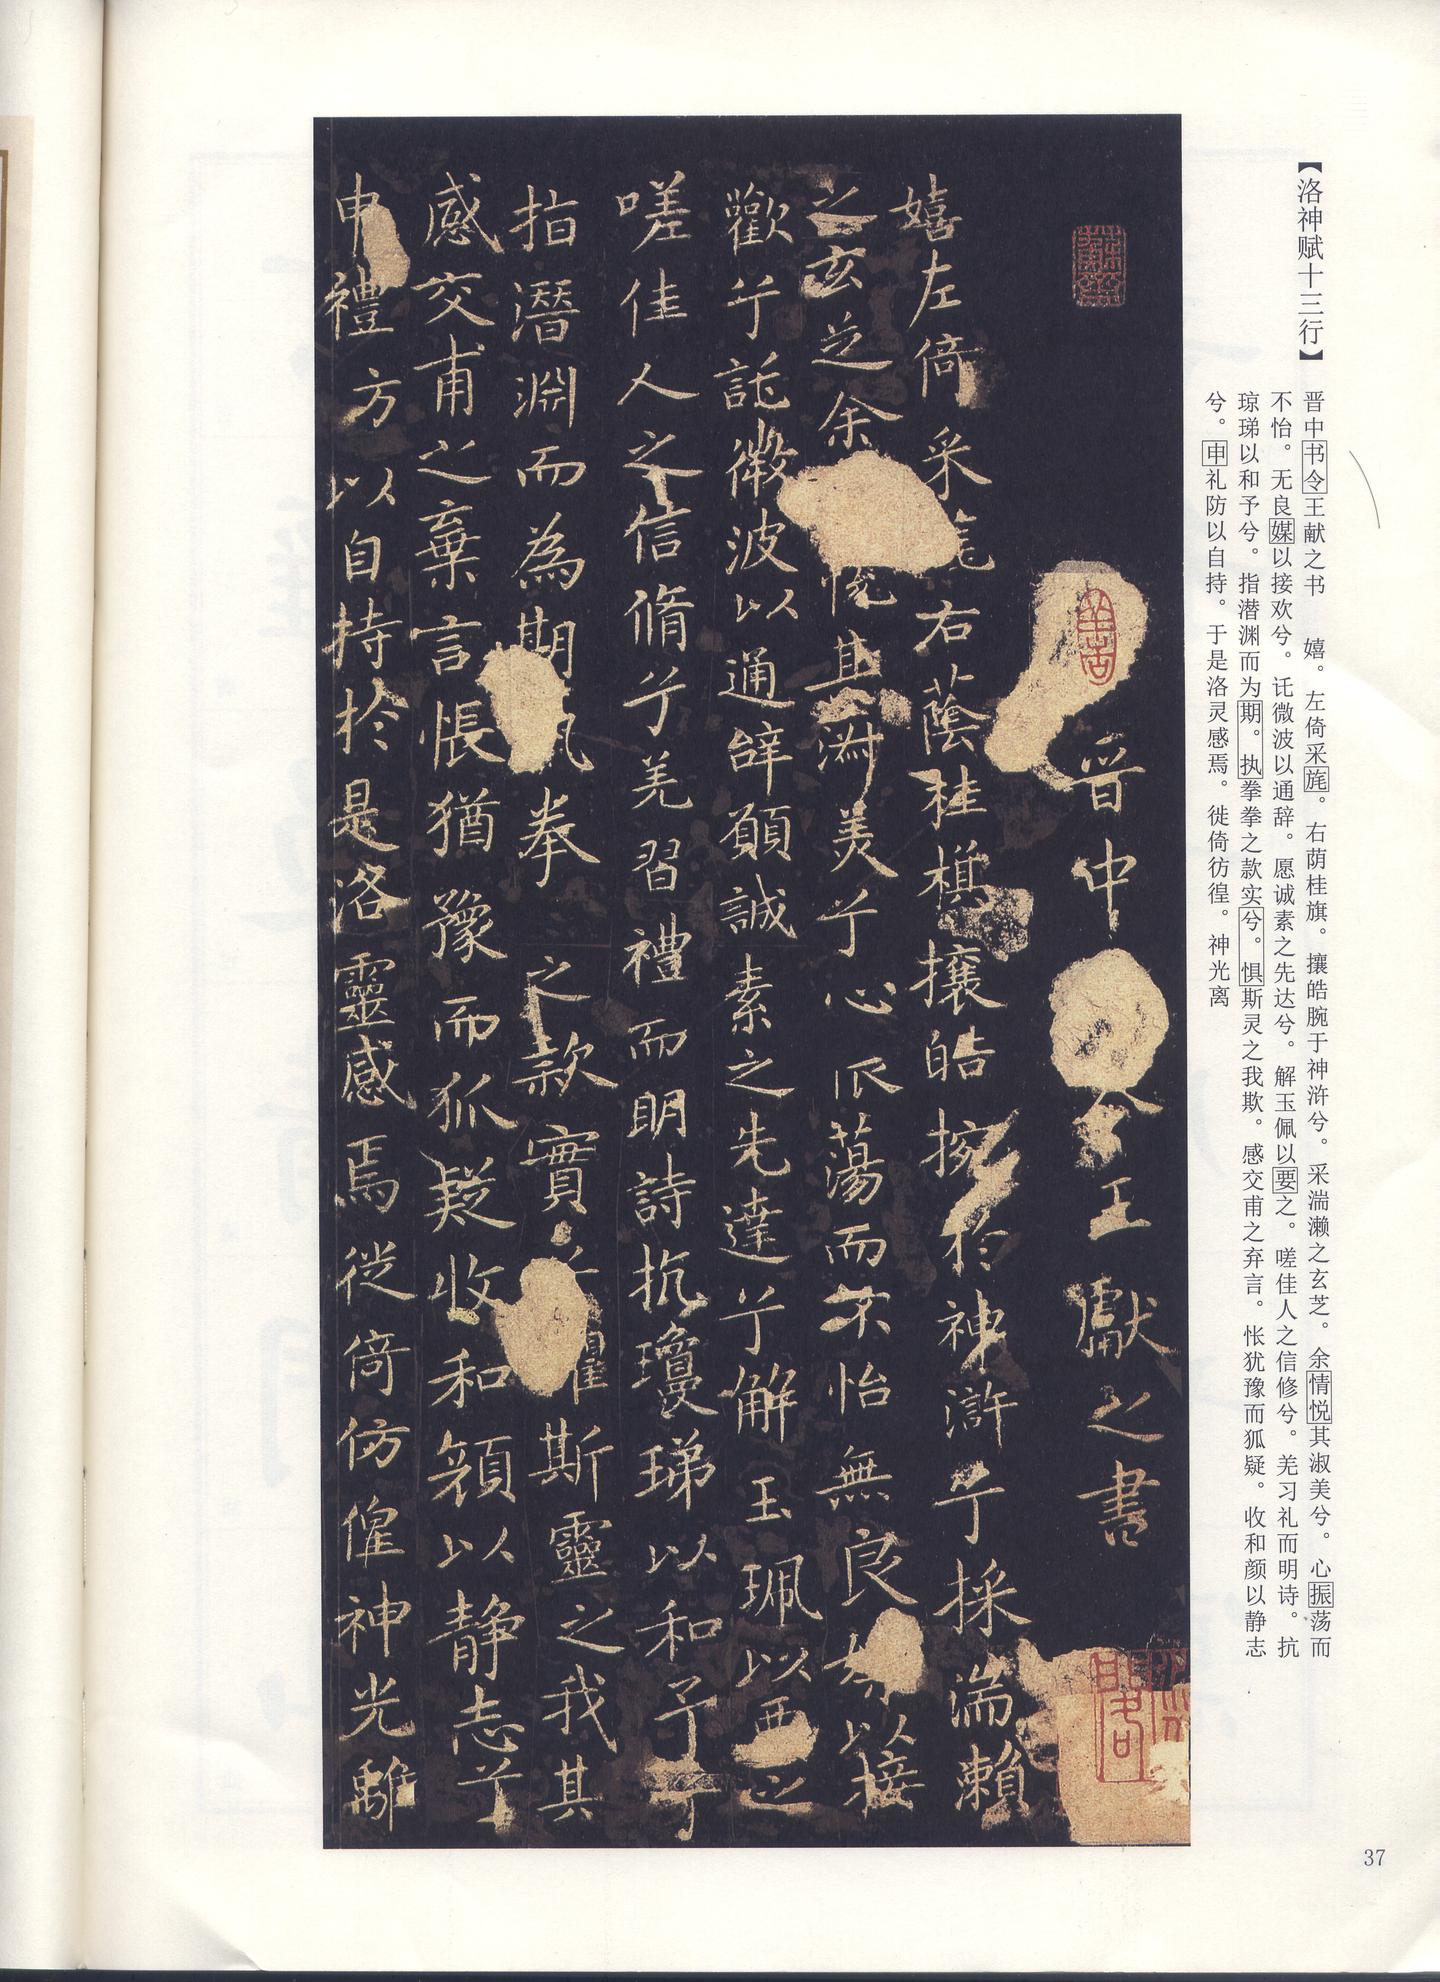 【洛神赋十三行】
晋中书令王献之书　嬉。左倚采旄。右荫桂旗。攘皓腕于神浒兮。采湍濑之玄芝。余情悦其淑美兮。心振荡而
不怡。无良媒以接欢兮。讬微波以通辞。愿诚素之先达兮。解玉佩以要之。嗟佳人之信修兮。羌习礼而明诗。抗
琼珶以和予兮。指潜渊而为期。执拳拳之款实兮。惧斯灵之我欺。感交甫之弃言。怅犹豫而狐疑。收和颜以静志
兮。申礼防以自持。于是洛灵感焉。徙倚彷徨。神光离
晋中令王獻之書
嬉左倚采旄右蔭桂旗攘皓捥於神滸兮採湍瀨
之玄芝余悅其淑美兮心振蕩而不怡無良媒以接
歡兮託微波以通辞願誠素之先達兮解玉珮以要之
嗟佳人之信脩兮羌習禮而明詩抗瓊珶以和予兮
指潛淵而為期執拳之款實兮懼斯靈之我其
感交甫之棄言悵猶豫而狐疑收和顏以静志兮
申禮方以自持於是洛靈感焉徙倚仿偟神光離
37